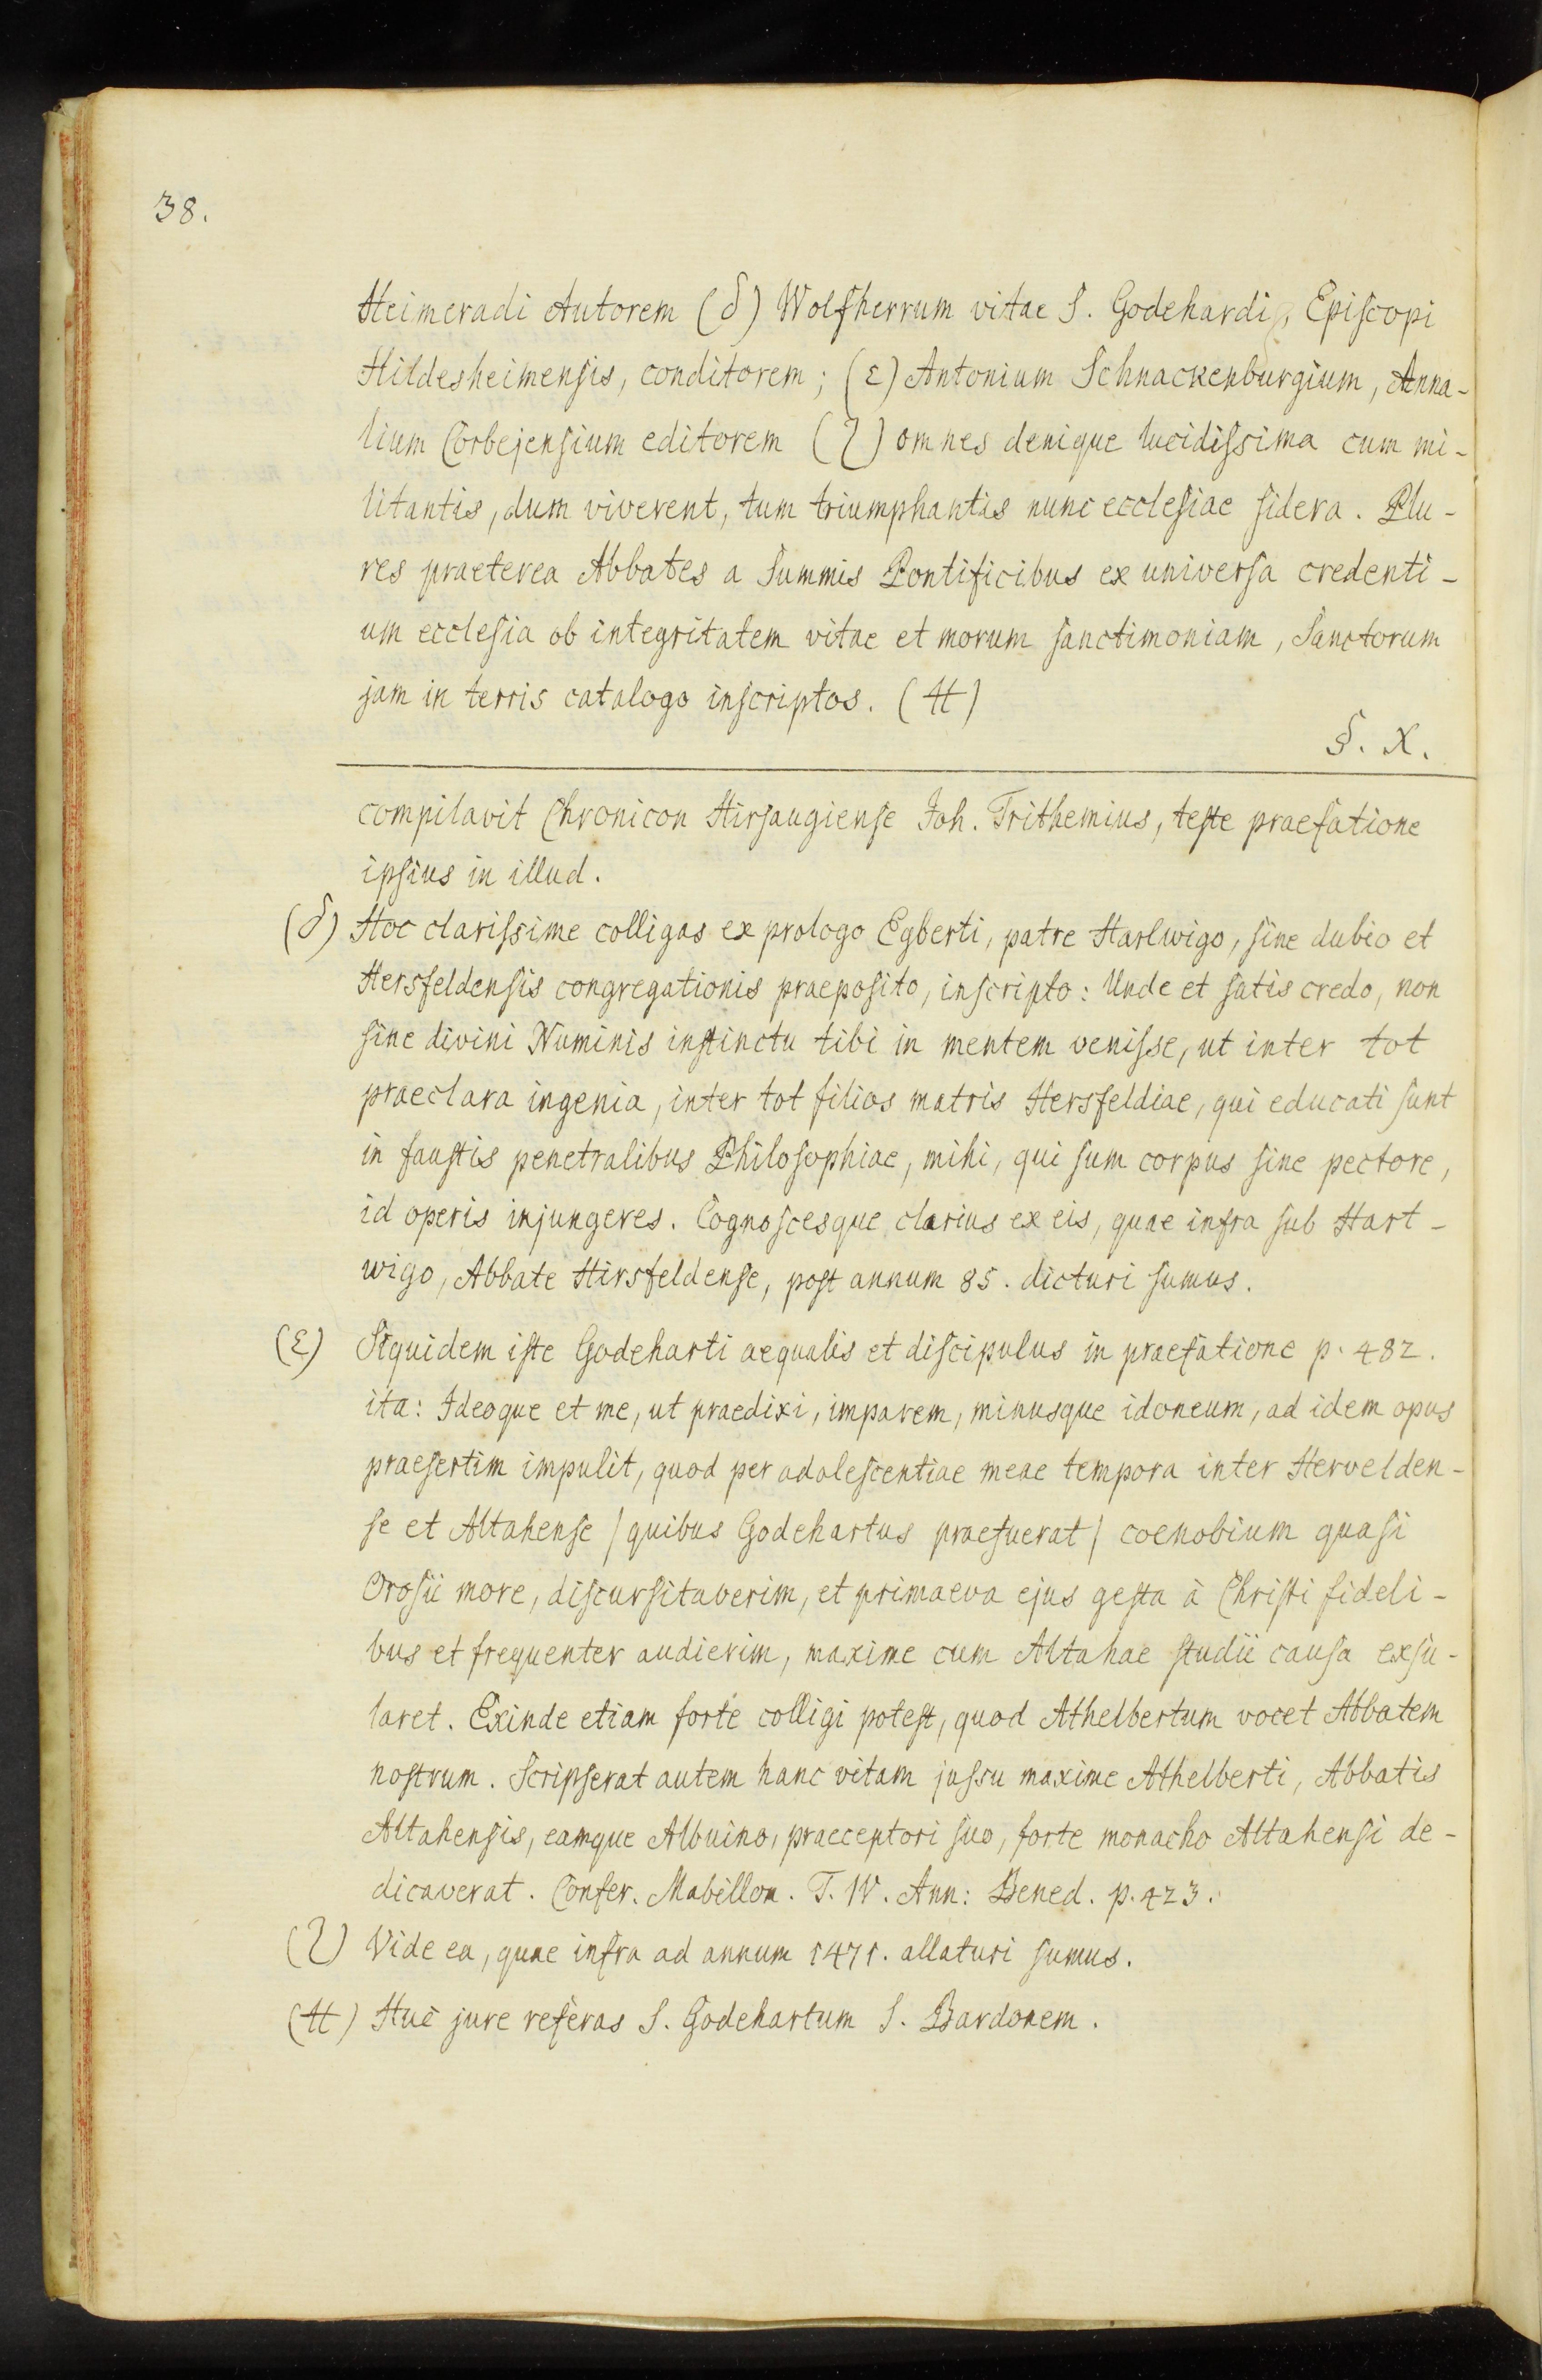 38.
Heimeradi Autorem (δ) Wolfherrum vitae S. Godehardi, Episcopi
Hildesheimensis, conditorem; (ε) Antonium Schnackenburgium, Anna-
lium Corbejensium editorem (ζ) omnes denique lucidissima cum mi-
litantis, dum viverent, tum triumphantis nunc ecclesiae sidera. Plu-
res praeterea Abbates a Summis Pontificibus ex universa credenti-
um ecclesia ob integritatem vitae et morum sanctimoniam, Sanctorum
jam in terris catalogo inscriptos. (H)
§. X.
compilavit Chronicon Hirsaugiense Joh. Trithemius, teste praefatione
ipsius in illud.
(δ) Hoc clarissime colligas ex prologo Egberti, patre Harlwigo, sine dubio et
Hersfeldensis congregationis praeposito, inscripto: Unde et satis credo, non
sine divini Numinis instinctu tibi in mentem venisse, ut inter tot
praeclara ingenia, inter tot filios matris Hersfeldiae, qui educati sunt
in faustis penetralibus Philosophiae, mihi, qui sum corpus sine pectore,
id operis injungeres. Cognoscesque clarius ex eis, quae infra sub Hart-
wigo, Abbate Hirsfeldense, post annum 85. dicturi sumus.
(ε) Siquidem iste Godeharti aequalis et discipulus in praefatione p. 482.
ita: Ideoque et me, ut praedixi, imparem, minusque idoneum, ad idem opus
praesertim impulit, quod per adolescentiae meae tempora inter Hervelden-
se et Altahense / quibus Godehartus praefuerat / coenobium quasi
Orosii more, discursitaverim, et primaeva ejus gesta à Christi fideli-
bus et frequenter audierim, maxime cum Altahae studii causa exsu-
laret. Exinde etiam forte colligi potest, quod Athelbertum vocet Abbatem
nostrum. Scripserat autem hanc vitam jussu maxime Athelberti, Abbatis
Altahensis, eamque Albuino, praeceptori suo, forte monacho Altahensi de-
dicaverat. Confer. Mabillon. T. IV. Ann: Bened. p. 423.
(ζ) Vide ea, quae infra ad annum 1471. allaturi sumus.
(H) Huc jure referas S. Godehartum S. Bardonem.